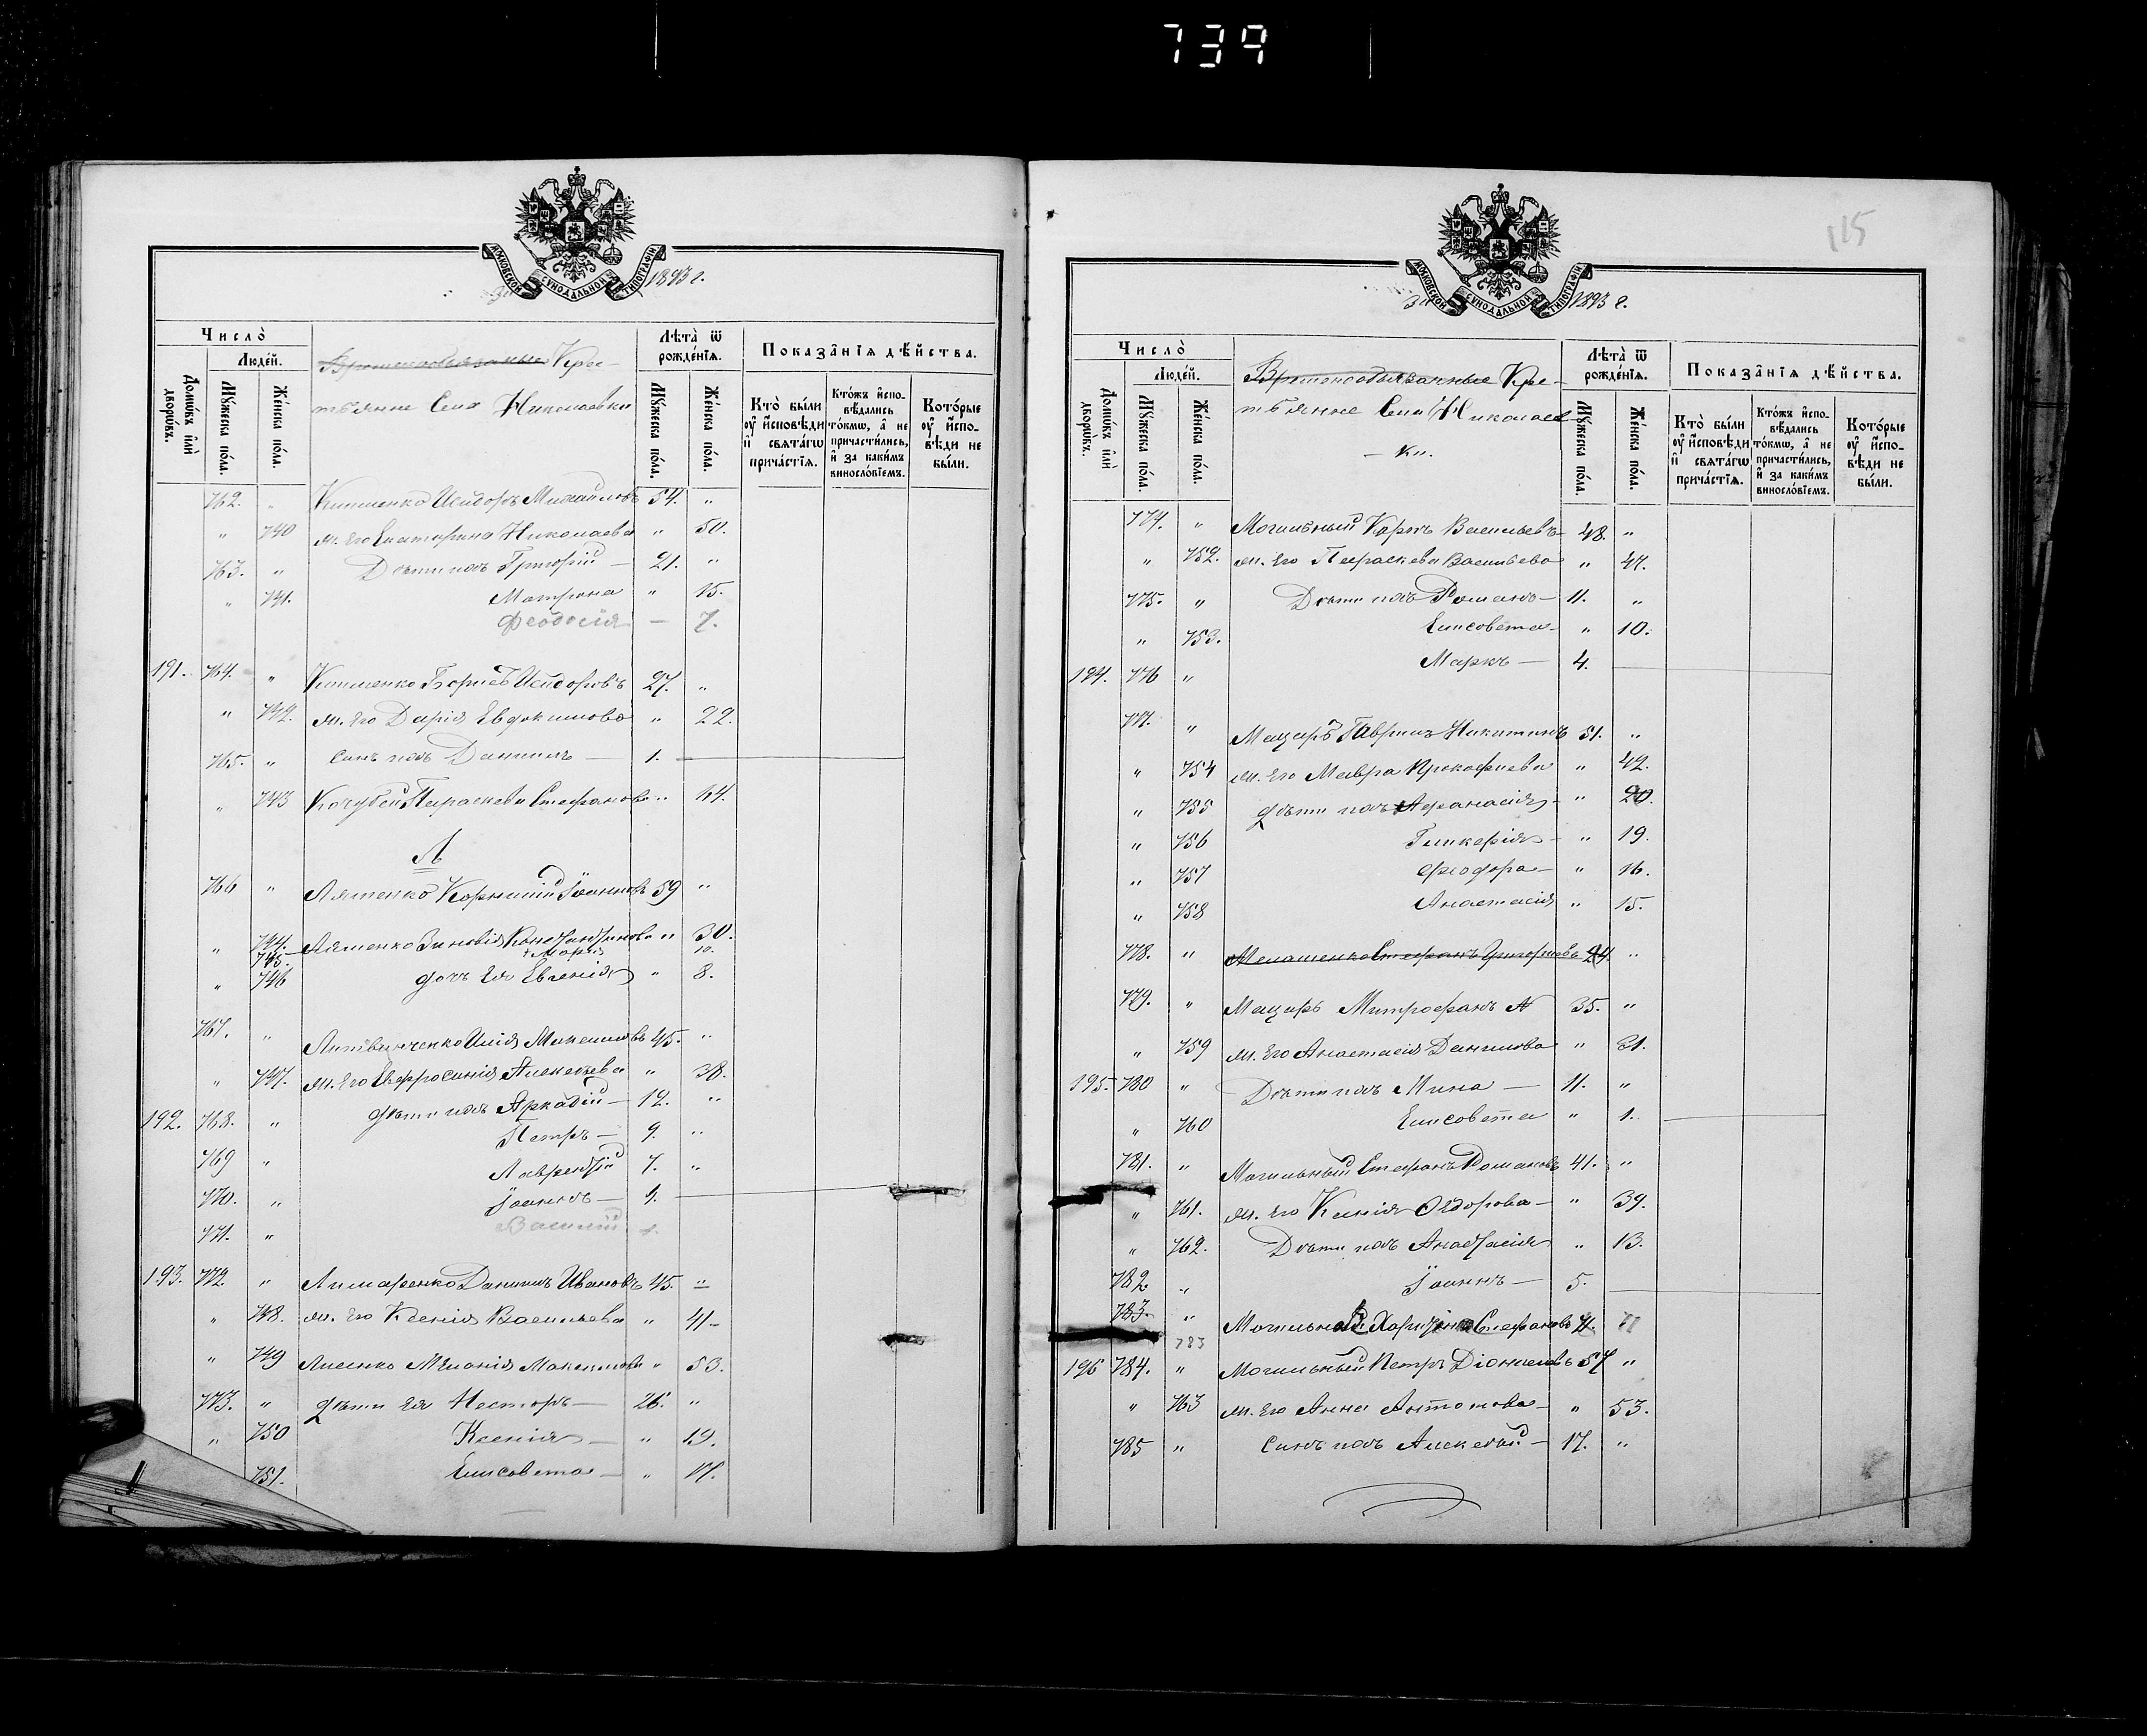 739
МОСКОВСКОЙ СѴНОДАЛЬНОЙ ТИПОГРАФІИ
1893 г.
Число̀
Людей.
Домѡ́въ и҆лѝ дворѡ́въ.
Мꙋ́жеска по́ла.
Же́нска по́ла.
Временнообязанные Кре-
стьяне Села Николаевки
Лѣта̀ ѿ рожде́нїѧ.
Мꙋ́жеска по́ла.
Же́нска по́ла.
Показа̂нїѧ дѣ́йства.
Кто̀ бы́ли оу҆ и҆́сповѣди и҆ свѧта́гѡ прича́стїѧ.
Кто́жъ и҆спо-вѣ́дались то́кмѡ, а҆ не причасти́лись, и҆ за каки́мъ винослѡ́вїемъ.
Кото́рые оу҆ и҆́спо-вѣди не бы́ли.
762. " Клименко Исидоръ Михайловъ 54. "
" 740 ж. его Екатерина Николаева " 50.
763. " Дѣти ихъ Григорій — 21. "
" 741. Матрона " 15.
Феодосія — 7.
191. 764. " Клименко Борисъ Исидоровъ 27. "
" 742. ж. его Дарія Евдокимова " 22.
765. " сынъ ихъ Даниилъ — 1.
" 743 Кочубей Параскева Стефанова " 44.
Л
766 " Ляшенко Корнилій Іоанновъ 59 "
" 744. Ляшенко Зиновія Константинова " 30.
745. + Марія 10.
" 746 дочь ея Евгенія " 8.
767. " Литвиченко Илія Максимовъ 45. "
" 747. ж. его Евфросинія Алексѣева " 38.
192. 768. " дѣти ихъ Аркадій — 12. "
769 " Петръ — 9. "
770. " Лаврентій 7. "
771. " Іоаннъ — 1.
Василій 1.
193. 772. " Лимаренко Даниилъ Ивановъ 45. "
" 748. ж. его Ксенія Васильева " 41
" 749 Лисенко Меланія Максимова " 53.
773. " дѣти ея Несторъ — 26. "
" 750 Ксенія — " 19.
751. Елисавета — " 17.
115
МОСКОВСКОЙ СѴНОДАЛЬНОЙ ТИПОГРАФІИ
1893 г.
Число̀
Людей.
Домѡ́въ и҆лѝ дворѡ́въ.
Мꙋ́жеска по́ла.
Же́нска по́ла.
Временнообязанные Кре-
стьяне Села Николаев-
— ки.
Лѣта̀ ѿ рожде́нїѧ.
Мꙋ́жеска по́ла.
Же́нска по́ла.
Показа̂нїѧ дѣ́йства.
Кто̀ бы́ли оу҆ и҆́сповѣди и҆ свѧта́гѡ прича́стїѧ.
Кто́жъ и҆спо-вѣ́дались то́кмѡ, а҆ не причасти́лись, и҆ за каки́мъ винослѡ́вїемъ.
Кото́рые оу҆ и҆́спо-вѣди не бы́ли.
774. " Могильный Карпъ Васильевъ 48. "
" 752. ж. его Параскева Васильева " 47.
775. " Дѣти ихъ Романъ — 11. "
" 753. Елисавета — " 10.
194. 776 " Маркъ — 4.
777. " Мацаръ Гавріилъ Никитинъ 51. "
" 754 ж. его Мавра Прокофіева " 42.
" 755 дѣти ихъ Афанасія — " 20.
" 756 Гликерія — " 19.
" 757 Феодора — " 16.
" 758 Анастасія " 15.
778. " Мелашенко Стефанъ Григорьевъ 24. "
779. " Мацаръ Митрофанъ 35. "
" 759 ж. его Анастасія Данилова " 31.
195. 780 " Дѣти ихъ Мина — 11. "
" 760 Елисавета " 1.
781. " Могильный Стефанъ Романовъ 41. "
" 761. ж. его Ксенія Федорова — " 39.
" 762. Дѣти ихъ Анастасія " 13.
782 " Іоаннъ — 5.
783. " Харитонъ Стефановъ
783
196 784. " Могильный Петръ Діонисіевъ 57 "
" 763 ж. его Анна Антонова — " 53.
785 " Сынъ ихъ Алексѣй — 17. "